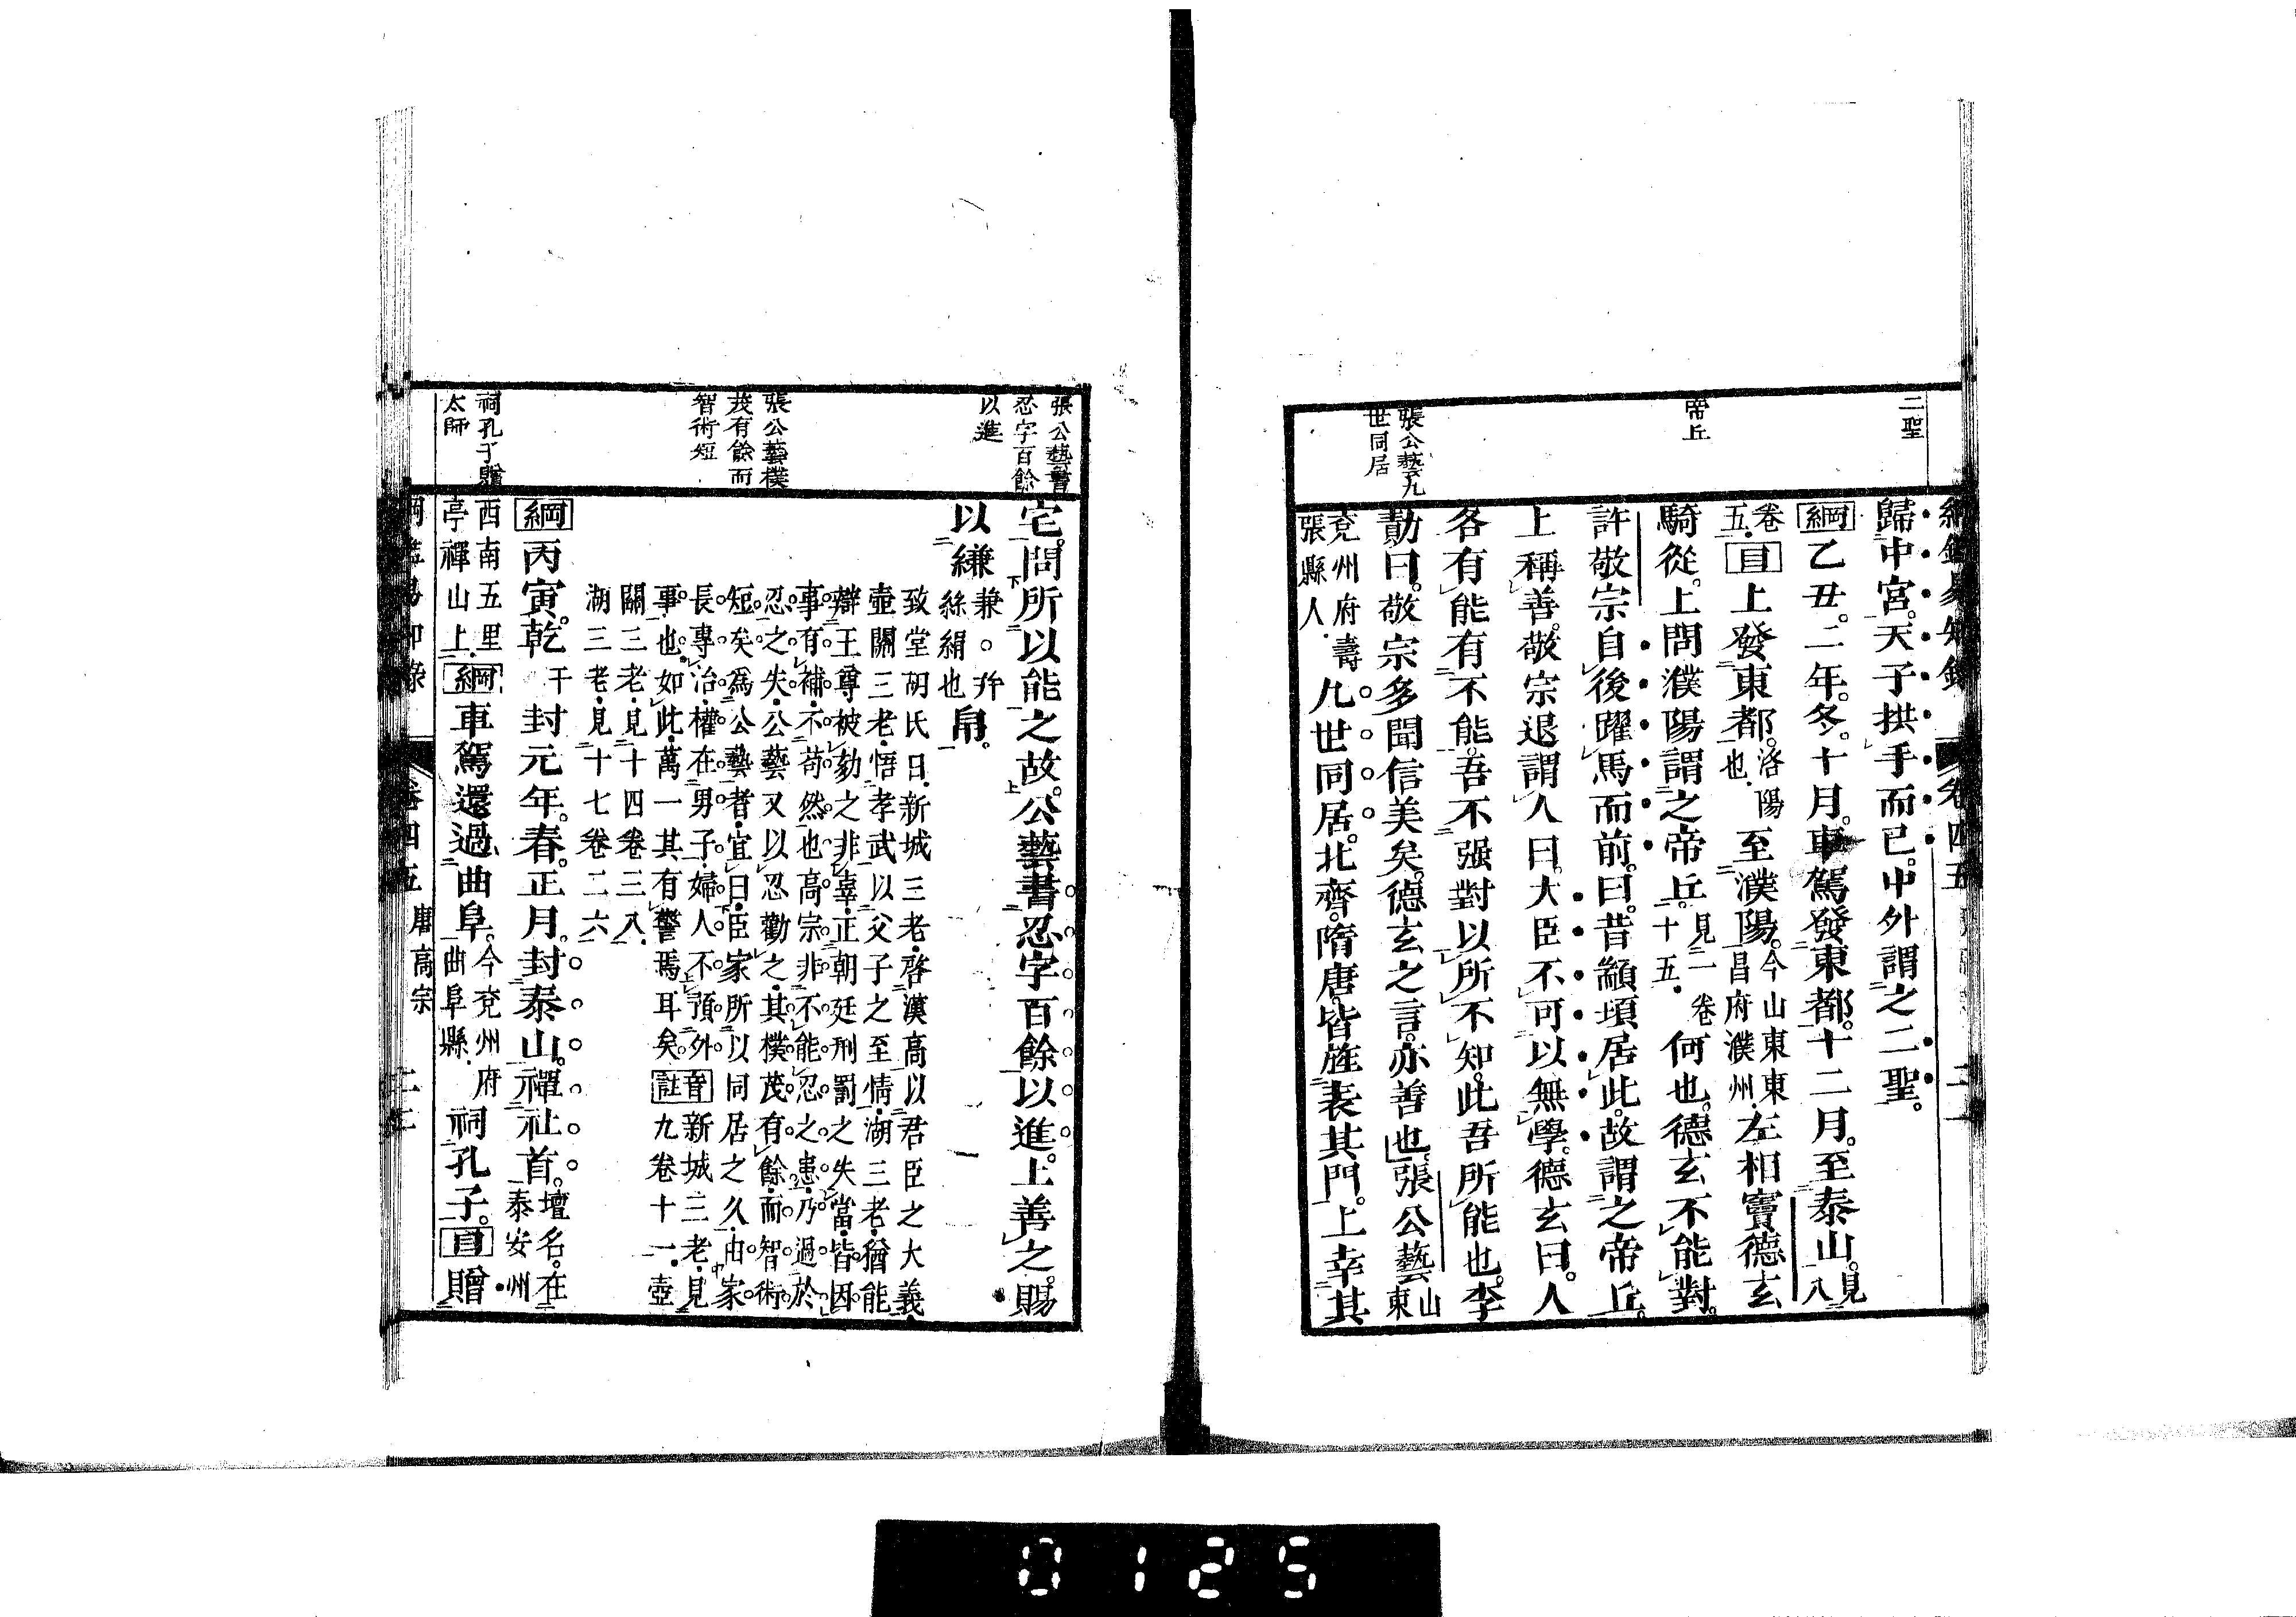 二聖
帝丘
張公藝九
世同居
歸中宮。天子拱手而已。中外謂之二聖。
綱乙丑。二年。冬。十月。車駕發東都。十二月。至泰山。見八
卷五。目上發東都。洛陽也。至濮陽。今山東東昌府濮州。左相竇德玄
騎從。上問濮陽謂之帝丘。見二卷十五。何也。德玄不能對。
許敬宗自後躍馬而前。曰。昔顓頊居此。故謂之帝丘。
上稱善。敬宗退謂人曰。大臣不可以無學。德玄曰。人
各有能有不能。吾不强對以所不知。此吾所能也。李
勣曰。敬宗多聞信美矣。德玄之言。亦善也。張公藝山東
兗州府壽張縣人。九世同居。北齊。隋唐。皆旌表其門。上幸其
張公藝書
忍字百餘
以進
張公藝樸
茂有餘而
智術短
祠孔子贈
太師
宅。問所以能之故。公藝書忍字百餘以進。上善之。賜
以縑兼。幷絲絹也帛。
致堂胡氏曰。新城三老。啓漢高以君臣之大義。
壺關三老。悟孝武以父子之至情。湖三老。猶能
辯王尊被劾之非辜。正朝廷刑罰之失當。皆因
事有補。不苟然也。高宗非不能忍之患。乃過於
忍之失。公藝又以忍勸之。其樸茂有餘。而智術
短矣。爲公藝者。宜曰。臣家所以同居之久。由家
長專治。權在男子。婦人不預外
事也。如此。萬一其有警焉耳矣。音註新城三老。見九卷十一。壺
關三老。見十四卷三八。
湖三老。見十七卷二六。
綱丙寅。乾干封元年。春。正月。封泰山。禪社首。壇名。在泰安州
西南五里亭禪山上。綱車駕還過曲阜。今兗州府曲阜縣。祠孔子。目贈
卷四五 唐高宗